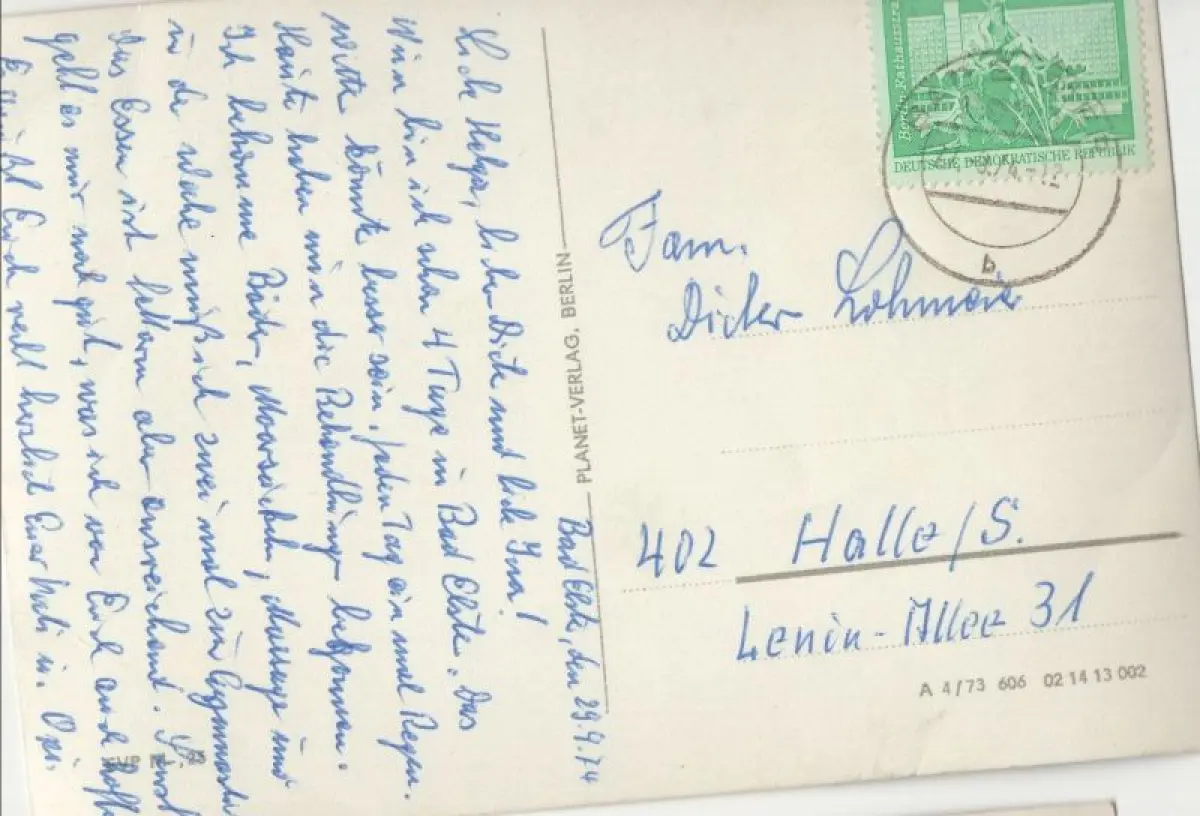 Bad Elster, den 29.9.74
Liebe Helga, lieber Dieter und liebe Ina!
Nun bin ich schon 4 Tage in Bad Elster. Das
Wetter könnte besser sein, jeden Tag einmal Regen.
Heute haben nun die Behandlungen begonnen.
Ich bekomme Bäder, Massage und
in der Woche muß ich zweimal zur Gymnastik
Das Essen ist aber ausreichend. Sonst
geht es mir noch gut, was ich von Euch auch hoffe
Es grüßt Euch recht herzlich Euer Vati u. Opi.
PLANET-VERLAG, BERLIN
Berlin, Rathausstraße
DEUTSCHE DEMOKRATISCHE REPUBLIK
b
Fam.
Dieter
402 Halle/S.
Lenin-Allee 31
A 4/73 606 02 14 13 002